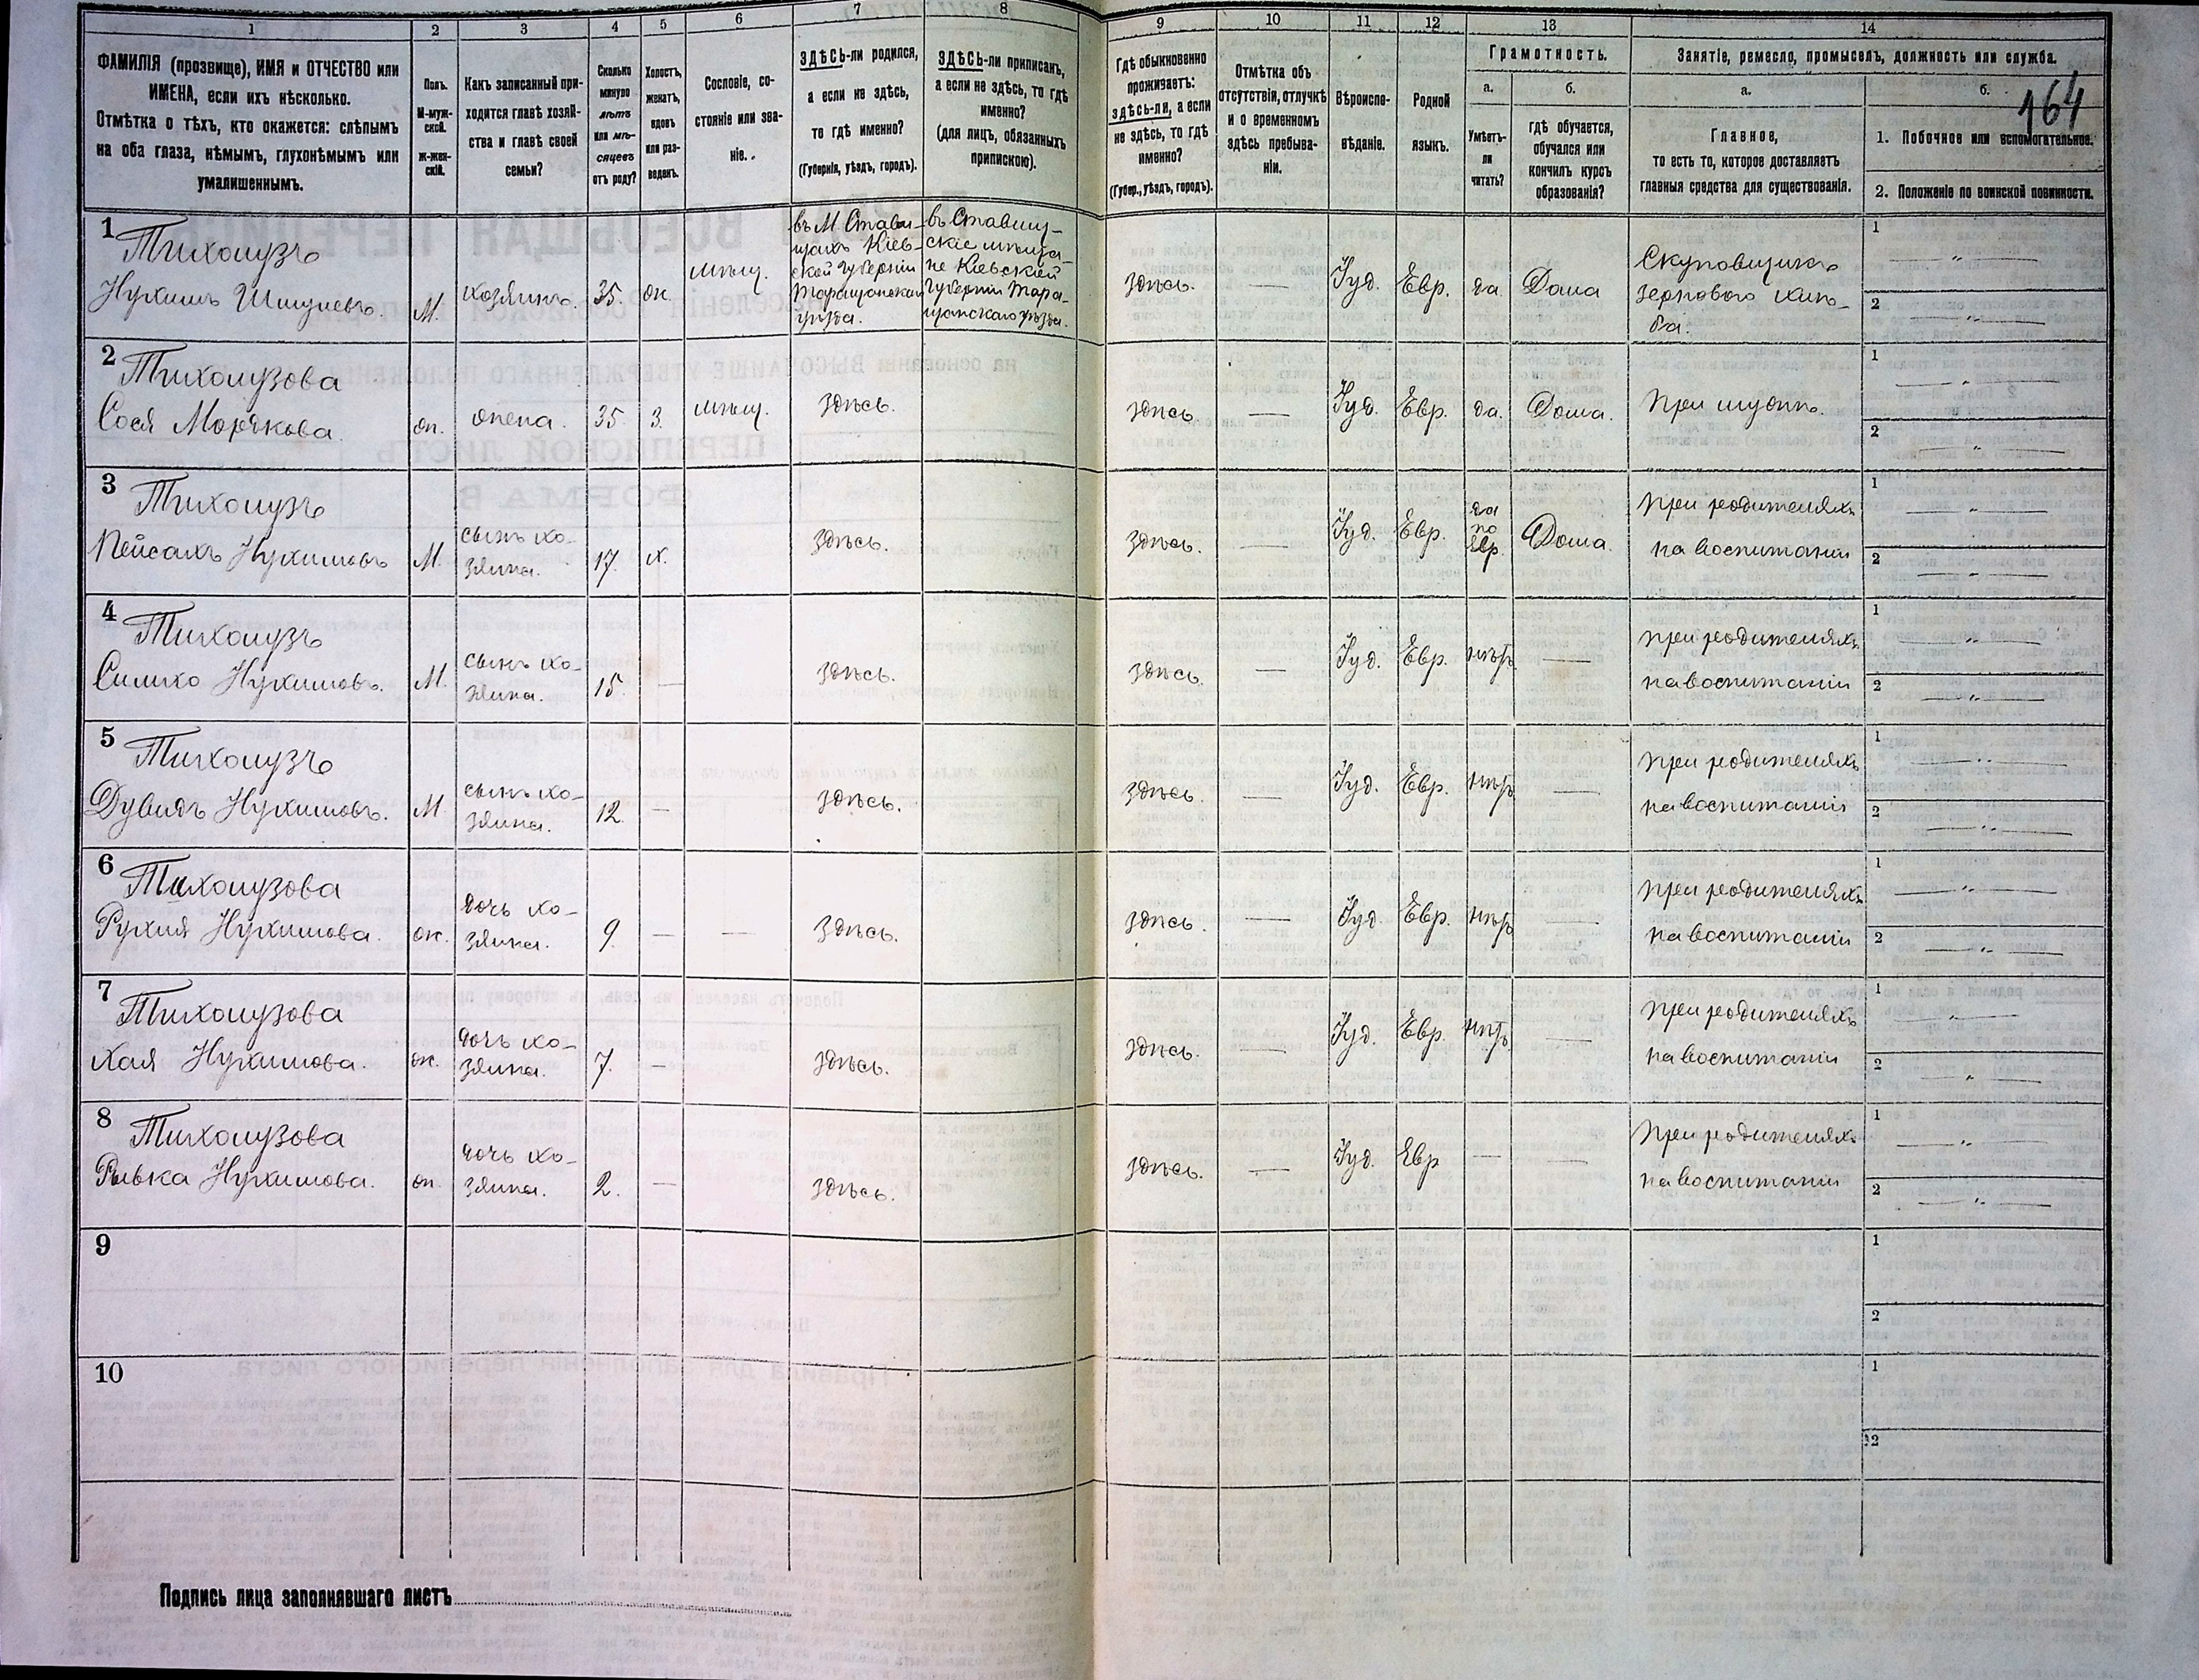 1 2 3 4 5 6 7 8 9 10 11 12 13 14
ФАМИЛІЯ (прозвище), ИМЯ и ОТЧЕСТВО или
ИМЕНА, если ихъ нѣсколько.
Отмѣтка о тѣхъ, кто окажется: слѣпымъ
на оба глаза, нѣмымъ, глухонѣмымъ или
умалишеннымъ.
Полъ.
М-муж-
ской.
Ж-жен-
скій.
Какъ записанный при-
ходится главѣ хозяй-
ства и главѣ своей
семьи?
Сколько
минуло
лѣтъ
или мѣ-
сяцевъ
отъ роду?
Холостъ,
женатъ,
вдовъ
или раз-
веденъ.
Сословіе, со-
стояніе или зва-
ніе.
ЗДѢСЬ-ли родился,
а если не здѣсь,
то гдѣ именно?
(Губернія, уѣздъ, городъ).
ЗДѢСЬ-ли приписанъ,
а если не здѣсь, то гдѣ
именно?
(для лицъ, обязанныхъ
припискою).
Гдѣ обыкновенно
проживаетъ:
здѣсь-ли, а если
не здѣсь, то гдѣ
именно?
(Губер., уѣздъ, городъ).
Отмѣтка объ
отсутствіи, отлучкѣ
и о временномъ
здѣсь пребыва-
ніи.
Вѣроиспо-
вѣданіе.
Родной
языкъ.
Грамотность.
а.
Умѣетъ-
ли
читать?
б.
гдѣ обучается,
обучался или
кончилъ курсъ
образованія?
Занятіе, ремесло, промыселъ, должность или служба.
а.
Главное,
то есть то, которое доставляетъ
главныя средства для существованія.
б.
164
1. Побочное или вспомогательное.
2. Положеніе по воинской повинности.
1
Нухимъ
М.
хозяинъ.
35.
ж.
мѣщ.
въ М Стави-
щахъ Кіев-
ской губерніи
Таращанскаго
уѣзда.
въ Ставищ-
скіе мѣща-
не Кіевской
губерніи Тара-
щанскаго уѣзда.
здѣсь.
Іуд.
Евр.
да
Дома
Скуповщикъ
зернового хлѣ-
ба.
1
2
2
Сося
ж.
жена.
35
З.
мѣщ.
здѣсь.
здѣсь
—
Іуд.
Евр.
да.
Дома.
При мужѣ.
1
2
3
Пейсахъ Нухимовъ
М.
сынъ хо-
зяина.
17.
х.
здѣсь.
здѣсь.
—
Іуд.
Евр.
да
по
Евр.
Дома.
При родителяхъ
на воспитаніи
1
2
4
Симко Нухимовъ.
М.
сынъ хо-
зяина.
15.
—
здѣсь.
здѣсь.
—
Іуд.
Евр.
нѣтъ
—
при родителяхъ
на воспитаніи
1
2
5
Дувидъ Нухимовъ.
М
сынъ хо-
зяина.
12.
—
здѣсь.
здѣсь.
—
Іуд.
Евр.
нѣтъ
—
при родителяхъ
на воспитаніи
1
2
6
Рухля Нухимова.
ж.
дочь хо-
зяина.
9.
—
—
здѣсь.
здѣсь.
—
Іуд.
Евр.
нѣтъ
—
при родителяхъ
на воспитаніи
1
2
7
Хая Нухимова.
ж.
дочь хо-
зяина.
7.
—
здѣсь.
здѣсь.
—
Іуд.
Евр.
нѣтъ
—
При родителяхъ
на воспитаніи
1
2
8
Ривка Нухимова.
ж.
дочь хо-
зяина.
2.
—
здѣсь.
здѣсь.
—
Іуд.
Евр
—
—
При родителяхъ
на воспитаніи
1
2
9
1
2
10
1
2
Подпись лица заполнявшаго листъ